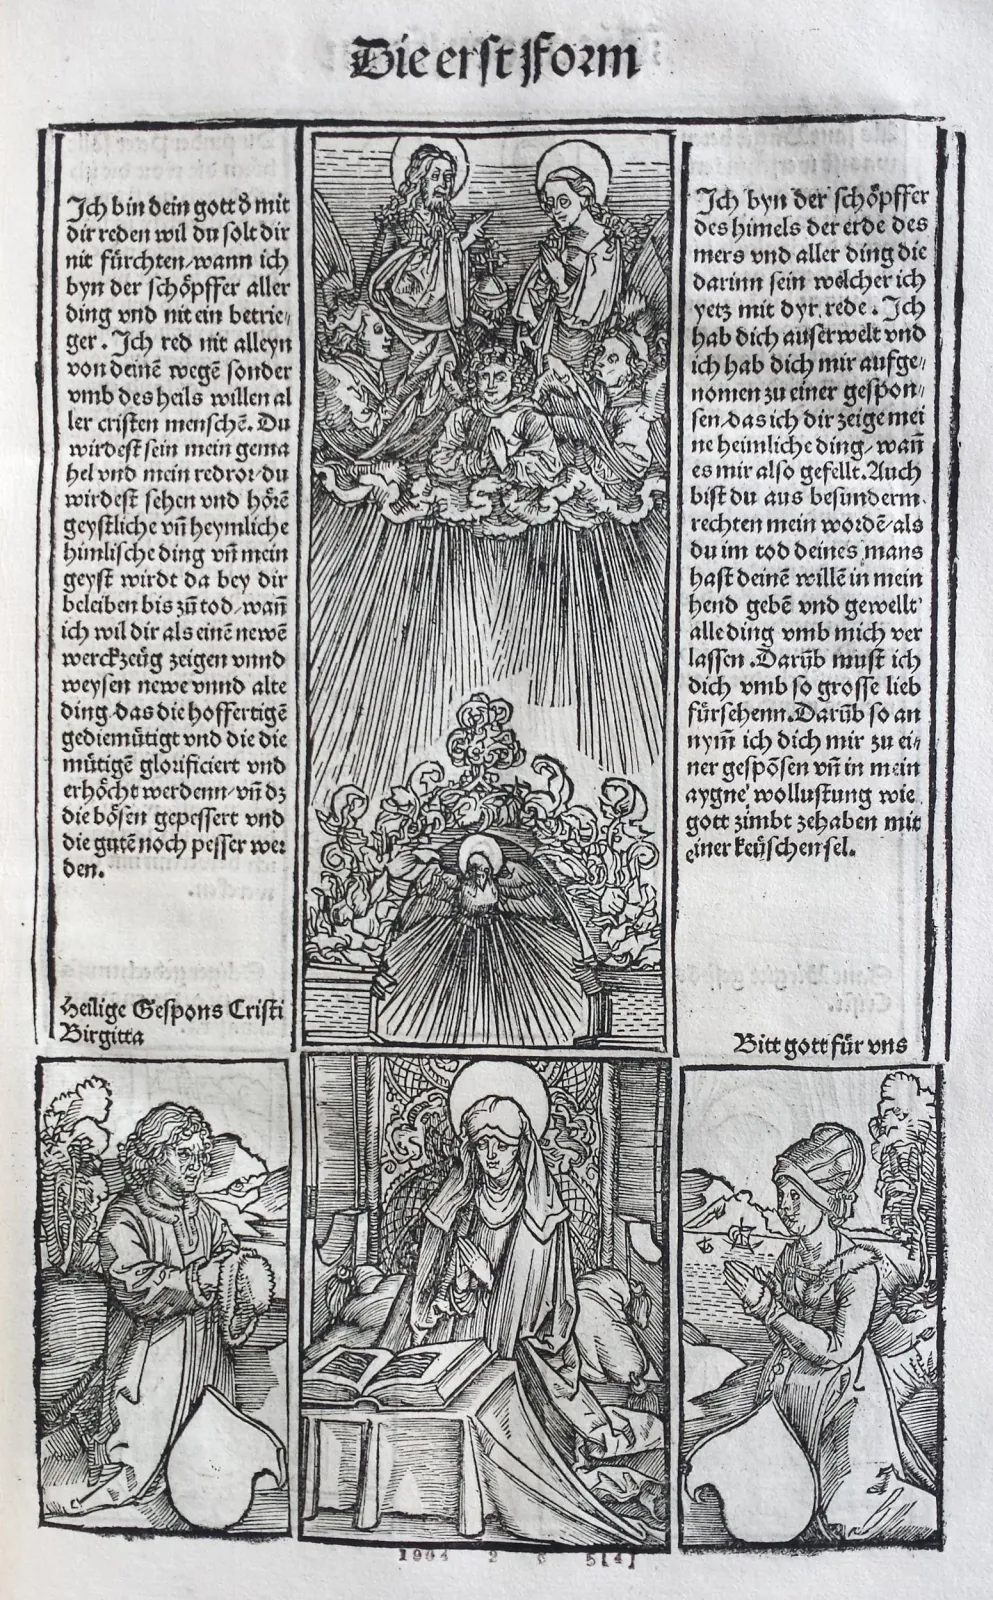 Die erst Form
Ich bin dein gott d̕ mit
dir reden wil du solt dir
nit fürchten/wann ich
byn der schöpffer aller
ding vnd nit ein betrie/
ger. Ich red nit alleyn
von deinē wegē sonder
vmb des heils willen al
ler cristen menschē. Du
wirdest sein mein gema
hel vnd mein redror/du
wirdest sehen vnd hörē
geystliche vn̄ heymliche
himlische ding vn̄ mein
geyst wirdt da bey dir
beleiben bis zū tod/wan̄
ich wil dir als einē newē
werckzeüg zeigen vnnd
weysen newe vnnd alte
ding.das die hoffertigē
gediemütigt vnd die die
mütigē glorificiert vnd
erhöcht werdenn/vn̄ dz
die bösen gepessert vnd
die gutē noch pesser wer
den.
Heilige Gespons Cristi
Birgitta
Ich byn der schöpffer
des himels der erde des
mers vnd aller ding die
darinn sein wölcher ich
yetz mit dyr rede. Ich
hab dich auserwelt vnd
ich hab dich mir aufge/
nomen zu einer gespon/
sen/das ich dir zeige mei
ne heimliche ding/wan̄
es mir also gefelt. Auch
bist du aus besunderm
rechten mein wordē/als
du im tod deines mans
hast deinē willē in mein
hend gebē vnd gewellt
alle ding vmb mich ver
lassen. Darūb must ich
dich vmb so grosse lieb
fürsehenn. Darūb so an
nym̄ ich dich mir zu ei/
ner gespōsen vn̄ in mein
aygne wollustung wie
gott zimbt zehaben mit
einer keüschen sel.
Bitt gott für vns
1904 2 6 5[4]